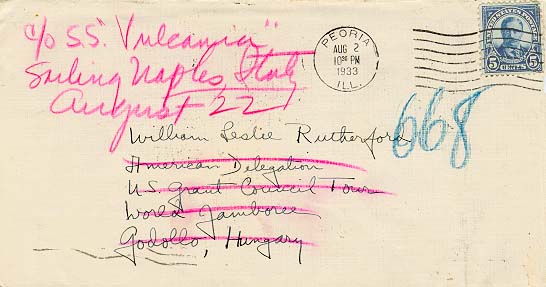 c/o S.S. "Vulcania"
Sailing Naples, Italy
August 22
PEORIA
AUG 2
10 30 PM
1933
ILL.
UNITED STATES POSTAGE
5 CENTS 5
668
William Leslie Rutherford
American Delegation
U.S. Grant Council Town
World Jamboree
Godollo, Hungary